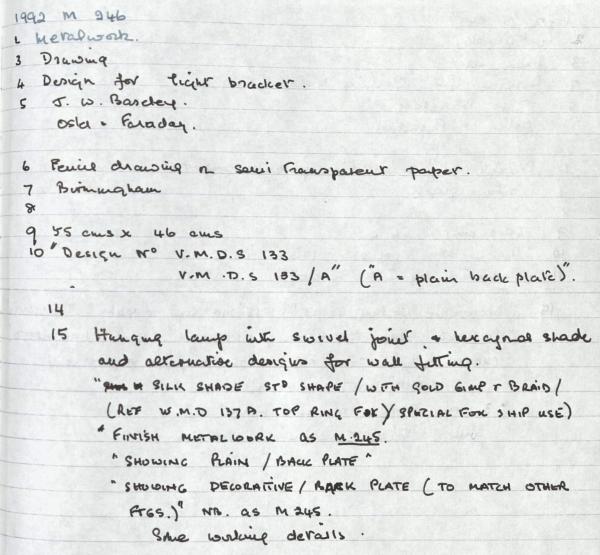 1992 M 246
1 Metalwork.
3 Drawing
4 Design for light bracket.
5 J. W. Barclay.
Osla + Faraday.
6 Pencil drawing on semi transparent paper.
7 Birmingham
8
9 55 cms x 46 cms
10 "Design No V.M.D.S 133
V.M.D.S 133/A" ("A = plain back plate)".
14
15 Hanging lamp with swivel joint & hexagonal shade
and alternative designs for wall fitting.
" SILK SHADE STD SHAPE / WITH GOLD GIMP & BRAID /
(REF W.M.D 137A. TOP RING FOR) SPECIAL FOR SHIP USE)
"FINISH METALWORK AS M.245.
"SHOWING PLAIN / BACK PLATE"
"SHOWING DECORATIVE / BACK PLATE (TO MATCH OTHER
FTGS.)" NB. AS M245.
Some working details.